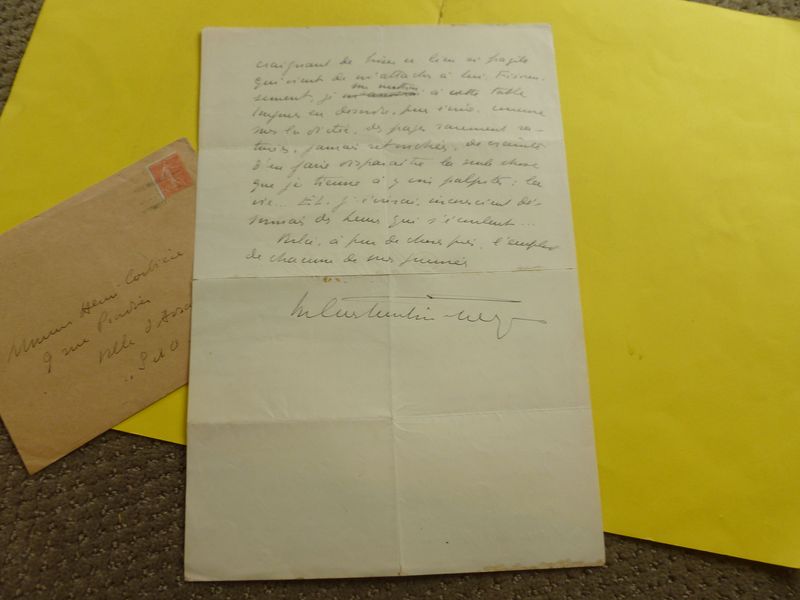 craignant de briser ce lien si fragile
qui vient de m'attacher à lui. Fiévreu-
sement, je me mettrai à cette table
longue en désordre, pour écrire, comme
sous la dictée, des pages rarement ra-
turées, jamais retouchées, de crainte
d'en faire disparaître la seule chose
que je tienne à y voir palpiter : la
vie... Et, j'écrirai, inconscient dé-
sormais des heures qui s'écoulent...
Voilà, à peu de chose près, l'emploi
de chacune de mes journées
Monsieur Henri Corbière
9 rue
Ville d'Avray
S et O